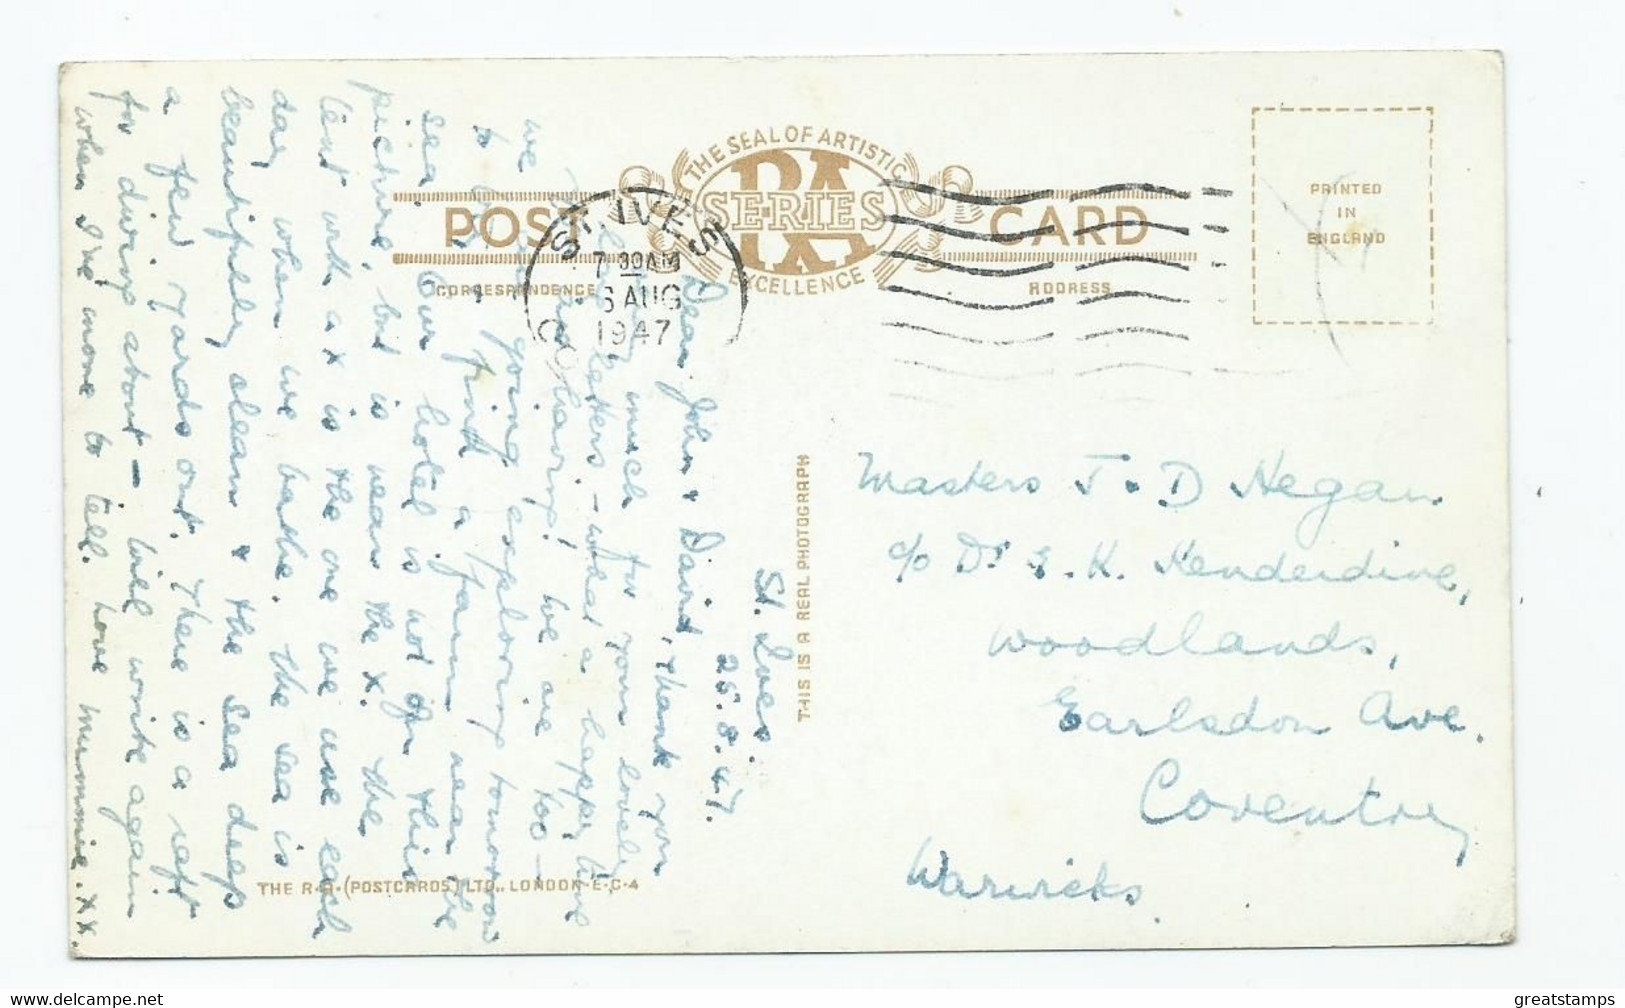 THE SEAL OF ARTISTIC
RA
SERIES
EXCELLENCE
POST CARD
CORRESPONDENCE
ADDRESS
PRINTED
IN
ENGLAND
ST. IVES
7 30 AM
6 AUG
1947
St. Ives.
25.8.47.
Dear John & David, thank you
very much for your lovely
letters - what a happy time
you are having! We are too -
we are going exploring tomorrow
to try & find a farm near the
sea. Our hotel is not on this
picture, but is near the x. The
tent with a x is the one we use each
day when we bathe. The sea is
beautifully clean & the sea deep
a few yards out. There is a raft
for diving about - will write again
when I've more to tell. Love Mummie. xx.
THIS IS A REAL PHOTOGRAPH
Masters J. & D Hegan
c/o Dr. E. K. Kenderdine,
Woodlands,
Earlsdon Ave.
Coventry
Warwicks.
THE R.A. (POSTCARDS) LTD., LONDON E.C.4
greatstamps